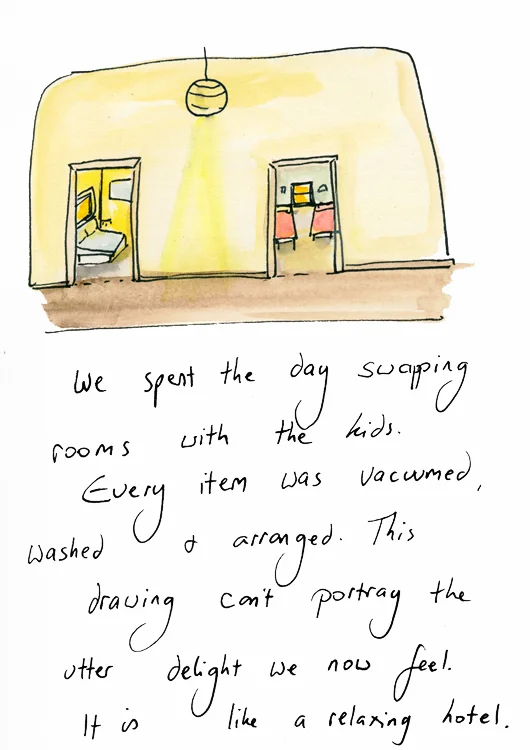 We spent the day swapping
rooms with the kids.
Every item was vacuumed,
washed & arranged. This
drawing can't portray the
utter delight we now feel.
It is like a relaxing hotel.